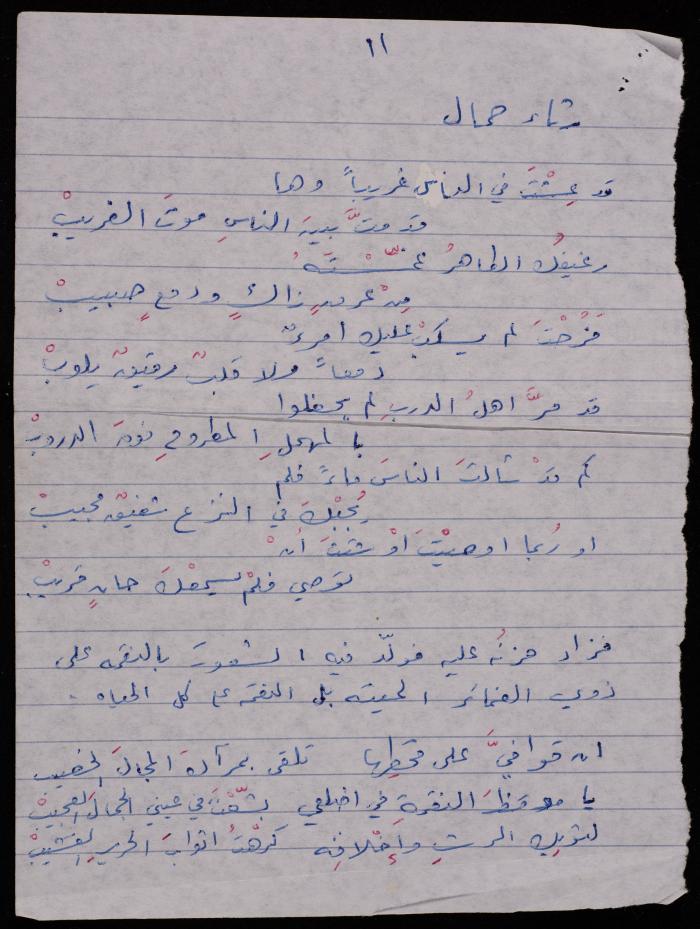 ١١
رثاء حمال
قد عِشْتَ في الناس غريباً وها
قد متَّ بينَ الناسِ موتَ الغريبْ
رغيفُك الطاهرُ غمّسْتَهُ
مِنْ عرقٍ زاكٍ ودمعٍ صبيبْ
فَرُحْتَ لم يسكبْ عليك امرءٌ
دمعاً ولا قلبٌ رقيقٌ يلوبْ
قد مرَّ اهلُ الدربِ لم يحفلوا
بالهيكلِ المطروحِ فوقَ الدروبْ
كم قدْ سألتَ الناسَ ماءً فلم
يُجبْكَ في النزع شفيقٌ مجيبْ
او رُبما اوصيْتَ أوْ شئتَ أنْ
توصي فلمْ يسمعْكَ حانٍ قريبْ
فزاد حزنُه عليه فولّد فيه الشعور بالنقمه على
ذوي الضمائر الميته بل النقمه على كل الحياه .
ان قوافيَّ على قحطِها تلقى بمرآكَ المجالَ الخصيب
يا منظرَ النقرةِ في اضلعي بشّعْتَ في عيني الجمالَ العجيبْ
لثوبِك الرثِ وإخْلاقِه كرّهْتُ اثوابَ الحريرِ القشيبْ